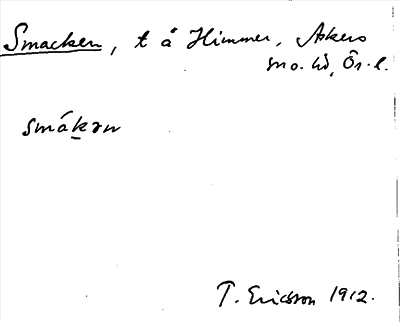 Smacken, t å Himmer, Askers
sn o. hd, Ör. l.
smákən
T. Ericsson 1912.